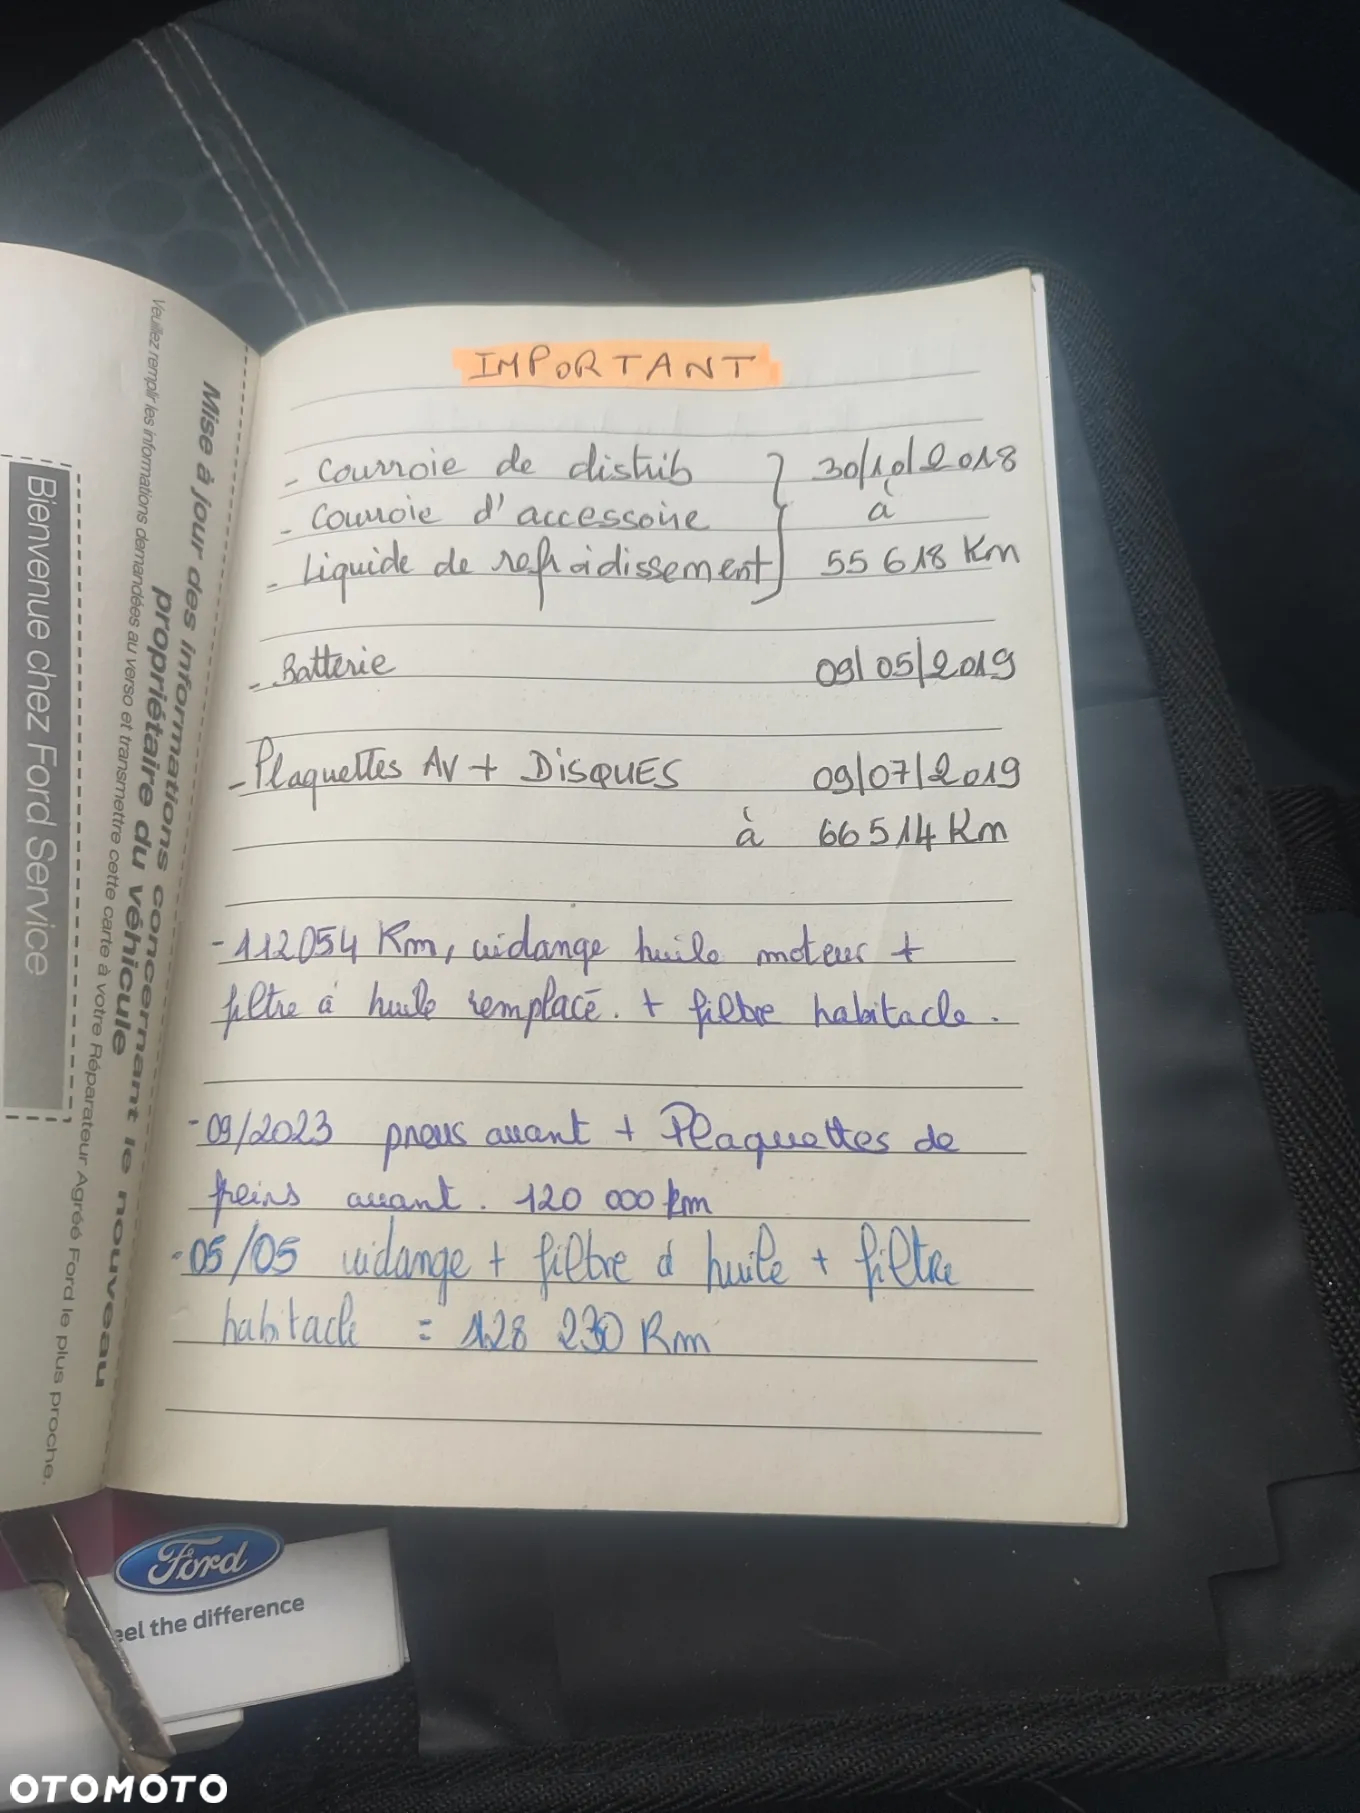 IMPORTANT
- Courroie de distrib } 30/10/2018
- Courroie d'accessoire à
- Liquide de refroidissement 55 618 Km
- Batterie 09/05/2019
- Plaquettes AV + DISQUES 09/07/2019
à 66 514 Km
- 112054 Km, vidange huile moteur +
filtre à huile remplacé. + filtre habitacle.
- 09/2023 pneus avant + Plaquettes de
freins avant. 120 000 km
- 05/05 vidange + filtre à huile + filtre
habitacle = 128 230 Km
Veuillez remplir les informations demandées au verso et transmettre cette carte à votre Réparateur Agréé Ford le plus proche.
Mise à jour des informations concernant le nouveau
propriétaire du véhicule
Bienvenue chez Ford Service
Ford
eel the difference
OTOMOTO